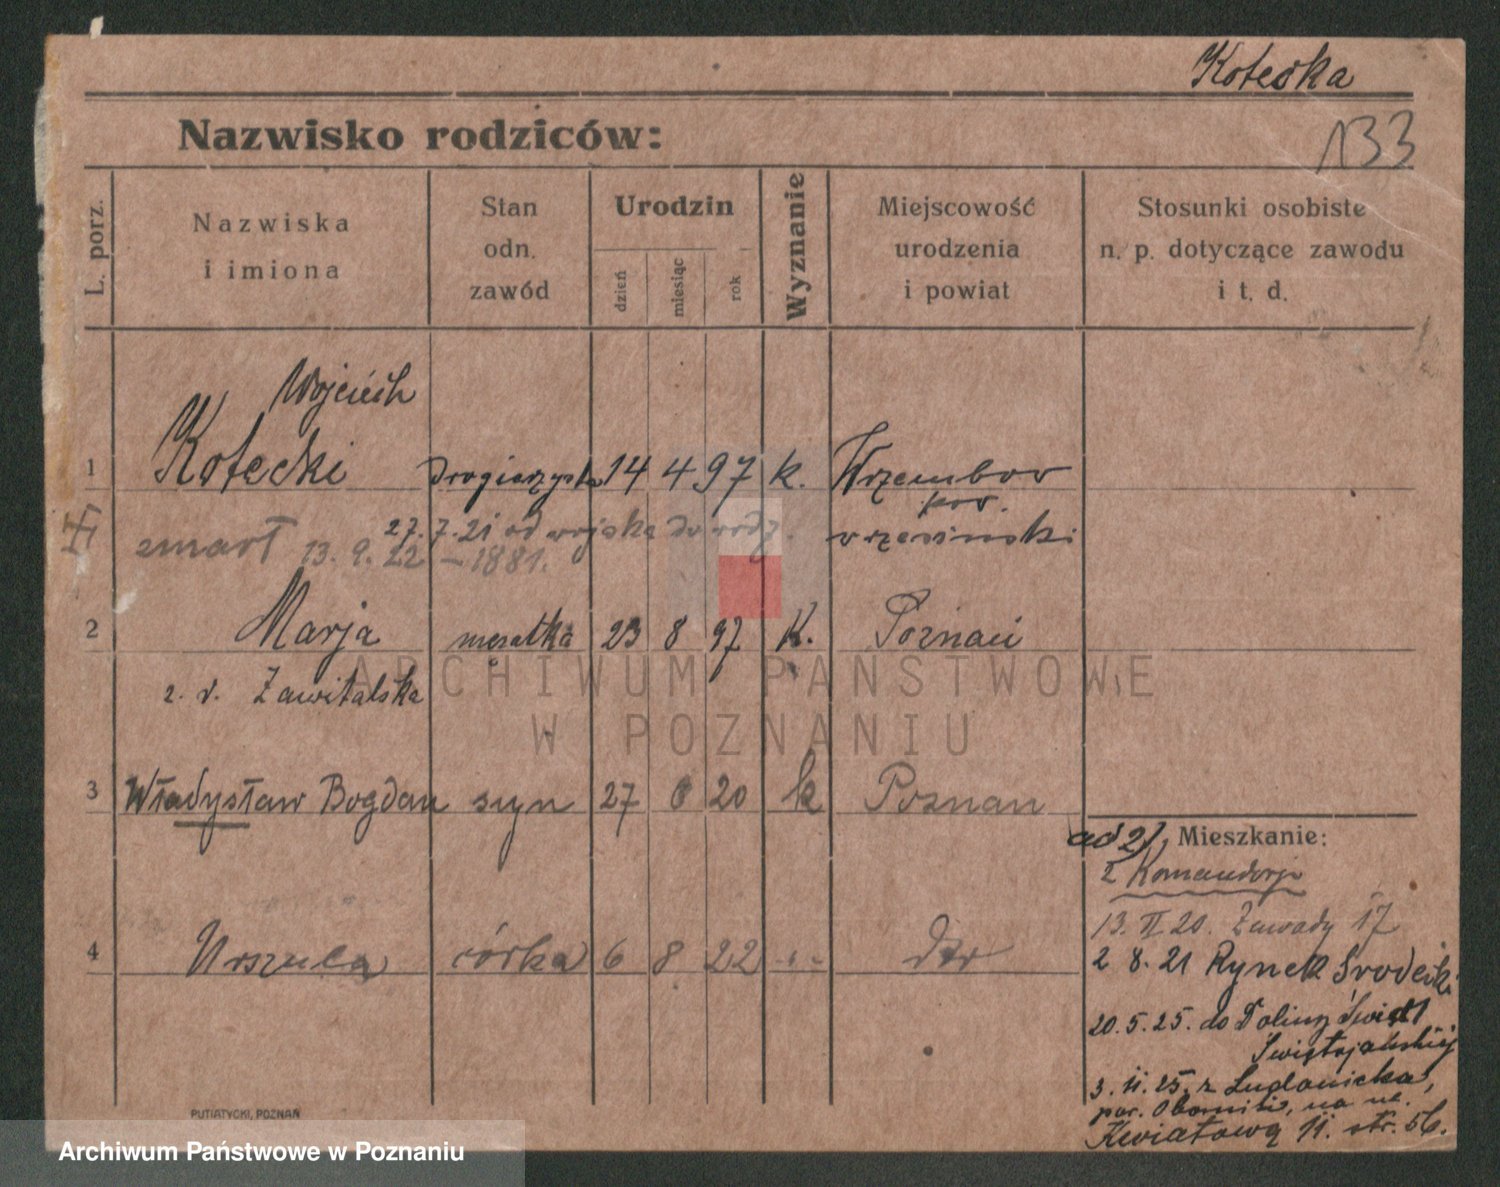 Kotecka
133
Nazwisko rodziców:
L. porz.
Nazwiska
i imiona
Stan
odn.
zawód
Urodzin
dzień
miesiąc
rok
Wyznanie
Miejscowość
urodzenia
i powiat
Stosunki osobiste
n. p. dotyczące zawodu
i t. d.
Wojciech
1 Kotecki drogierzysta 14 4 97 k. Wrzembor
pow.
27.7.21 od wojska do rodz. wrzesiński
zmarł 13.9.22 – 1881.
2 Marja mężatka 23 8 97 K. Poznań
z. d. Zawitalska
3 Władysław Bogdan syn 27 20 k Poznan
4 Urszula córka 6 8 22 dto
ad 2) Mieszkanie:
z Komandorji
13. II 20. Zawady 17
2 8. 21 Rynek Srodecki
20.5.25. do Doliny
Świętojańskiej
3. 11. 25. z Ludowicka,
pow. Oborniki, na ul.
Kwiatową 11. str. 56.
PUTIATYCKI, POZNAŃ
ARCHIWUM PAŃSTWOWE
W POZNANIU
Archiwum Państwowe w Poznaniu